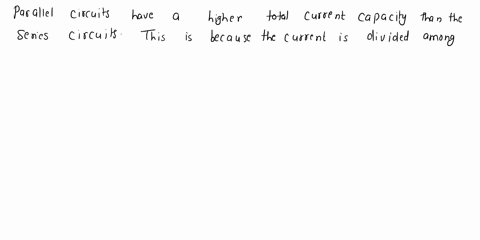 Parallel circuits have a higher total current capacity than the
Series circuits. This is because the current is divided among